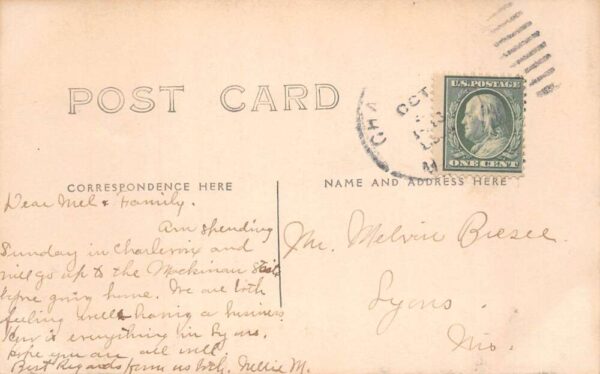 POST CARD
CHA
OCT
U.S. POSTAGE
ONE CENT
CORRESPONDENCE HERE
NAME AND ADDRESS HERE
Dear Mel & Family.
Am spending
Sunday in Charlevoix and
will go up to the Mackinaw
before going home. We are both
feeling well & having a business
is everything in Lyons.
hope you are all well
Best Regards from us both. Nellie M.
Mr. Melvin Bresee.
Lyons.